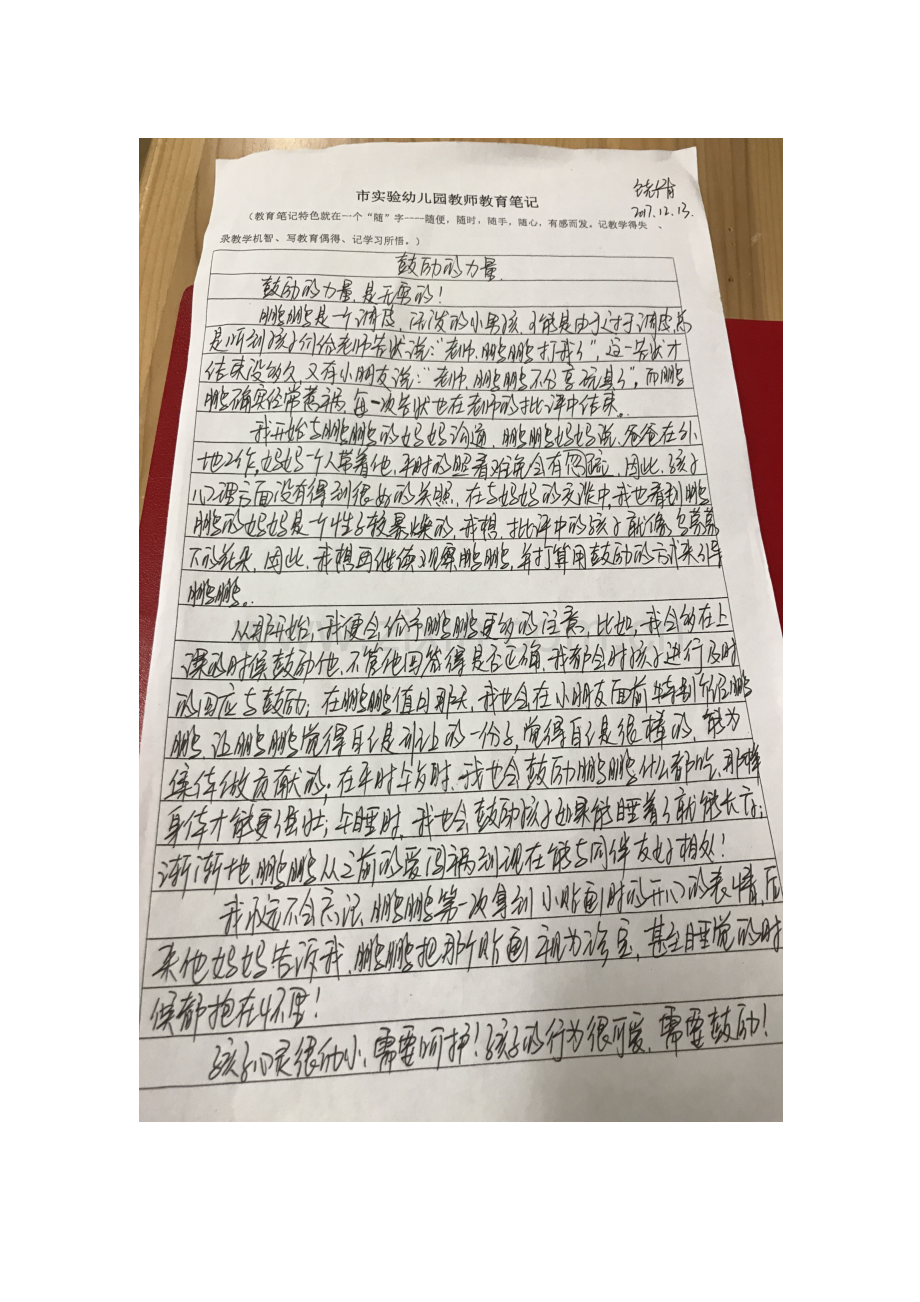 市实验幼儿园教师教育笔记
2017.12.13.
(教育笔记特色就在一个“随”字----随便，随时，随手，随心，有感而发。记教学得失、
录教学机智、写教育偶得、记学习所悟。)
鼓励的力量
鼓励的力量，是无穷的！
鹏鹏是一个调皮、活泼的小男孩，可能是由于过于调皮，总
是听到孩子们给老师告状说：“老师，鹏鹏打我了”，这一告状才
结束没多久，又有小朋友说：“老师，鹏鹏不分享玩具了”，而鹏
鹏确实经常惹祸，每一次告状也在老师的批评中结束。
我开始与鹏鹏的妈妈沟通，鹏鹏妈妈说，爸爸在外
地工作，妈妈一个人带着他，平时的照看难免会有，因此，孩子
心理方面没有得到很好的关照，在与妈妈的交谈中，我也看到鹏
鹏的妈妈是一个性子较暴燥的，我想，批评中的孩子就像
不的花朵，因此，我想再继续观察鹏鹏，并打算用鼓励的方式来引导
鹏鹏。
从那开始，我便会给予鹏鹏更多的注意，比如，我会多在上
课的时候鼓励他，不管他回答得是否正确，我都会对孩子进行及时
的回应与鼓励；在鹏鹏值日那天，我也会在小朋友面前特别介绍鹏
鹏，让鹏鹏觉得自己是班上的一份子，觉得自己是很棒的，能为
集体做贡献的；在平时午餐时，我也会鼓励鹏鹏什么都吃，那样
身体才能更强壮；午睡时，我也会鼓励孩子如果能睡着了就能长高；
渐渐地，鹏鹏从之前的爱闯祸到现在能与同伴友好相处！
我永远不会忘记，鹏鹏第一次拿到小贴画时的开心的表情，后
来他妈妈告诉我，鹏鹏把那个贴画视为珍宝，甚至睡觉的时
候都抱在怀里！
孩子心灵很幼小，需要呵护！孩子的行为很可爱，需要鼓励！